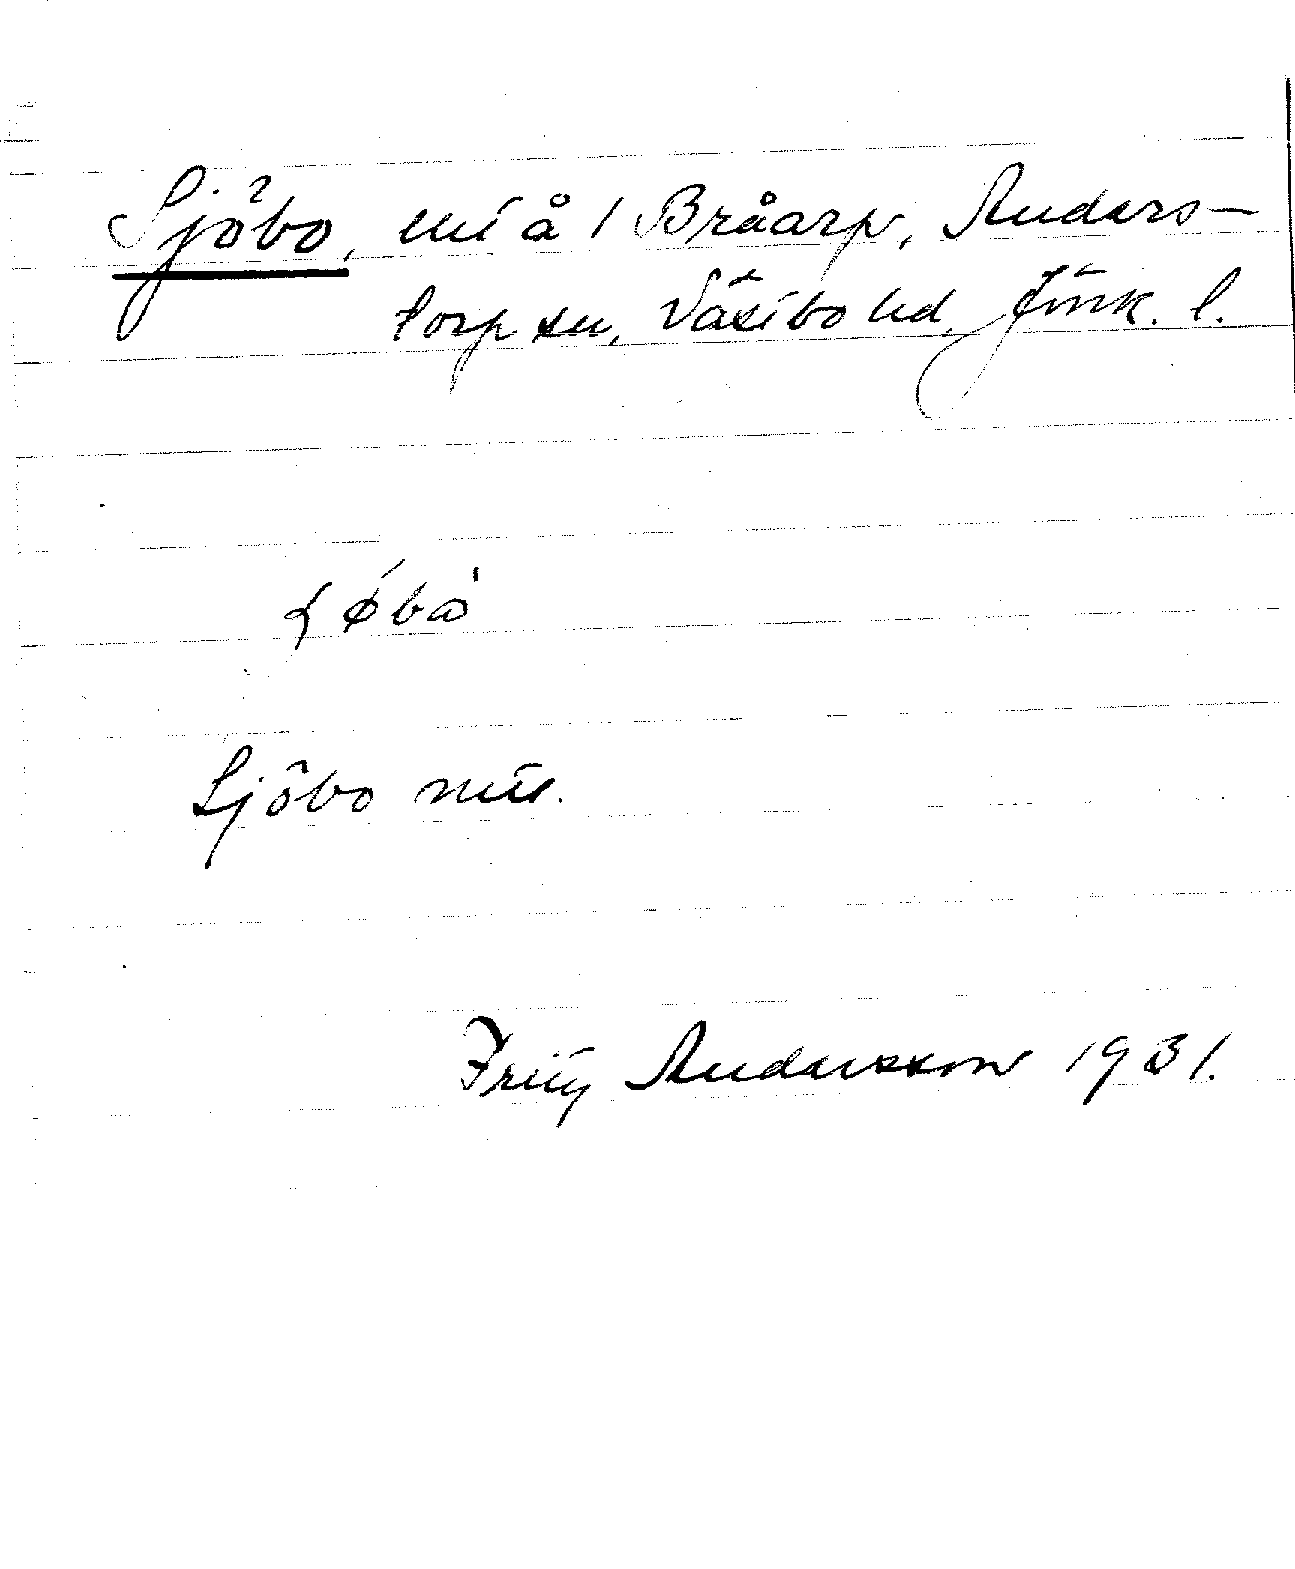 Sjöbo, utå 1 Bråarp, Anders-
torp sn, Västbo hd, Jönk. l.
Sjöbo
Fritz Andersson 1931.